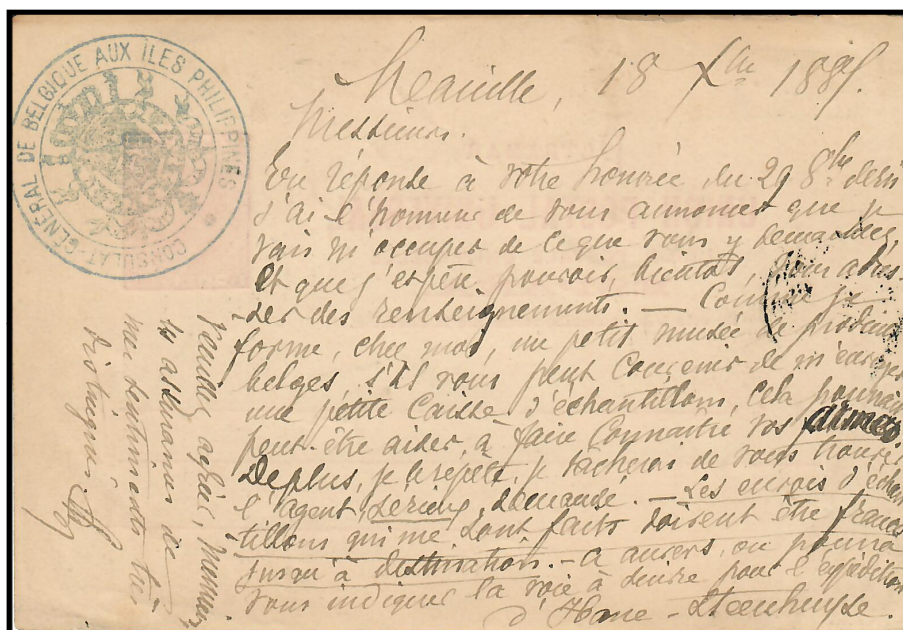 CONSULAT-GÉNÉRAL DE BELGIQUE AUX ILES PHILIPPINES
Manille, 18 Xbre 188
Messieurs.
En réponse à votre honorée du 29 8bre dern
j'ai l'honneur de vous annoncer que je
vais m'occuper de ce que vous y demandez,
et que j'espère pouvoir, bientôt, vous adres-
-ser des renseignements. — Comme je
forme, chez moi, un petit musée de produits
belges, s'il vous peut convenir de m'envoyer
une petite caisse d'échantillons, cela pourrait
peut-être aider à faire connaître vos armes
De plus, je le répète, je tâcherai de vous trouver
l'agent sérieux demandé. — Les envois d'échan
tillons qui me sont faits doivent être francs
jusqu'à destination. — à anvers, on pourra
vous indiquer la voie à suivre pour l'expédition
d'Hane-Steenhuyse.
Veuillez agréer, Messieurs,
les assurances de
mes sentiments très
distingués